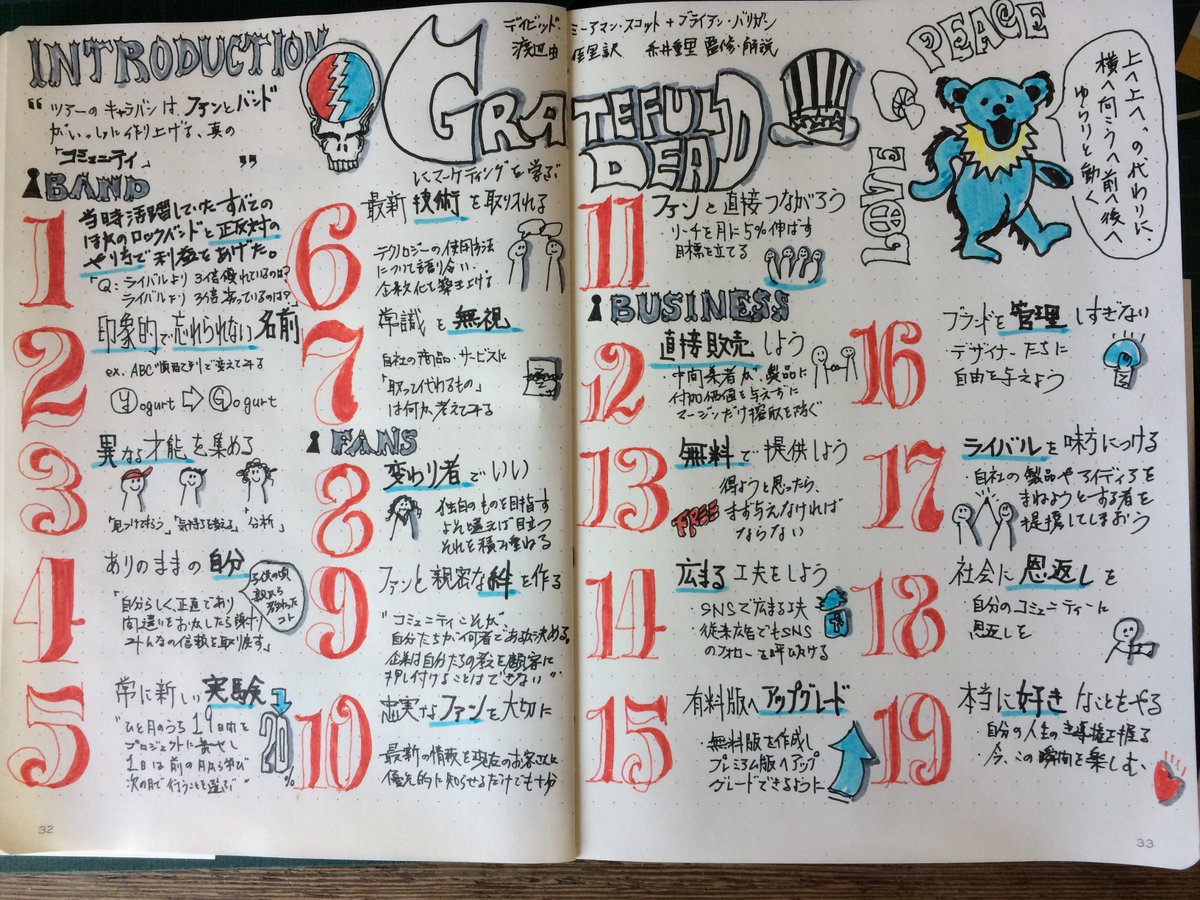 INTRODUCTION
"ツアーのキャラバンは、ファンとバンド
がいっしょに作り上げる、真の
「コミュニティ」"
デイビッド・ミーアマン・スコット+ブライアン・ハリガン
渡辺由佳里訳 糸井重里 監修・解説
GRATEFUL DEAD
にマーケティングを学ぶ
LOVE & PEACE
上へ上へ。の代わりに
横へ向こうへ前へ後へ
ゆらりと動く
BAND
1
当時活躍していたすべての
ほかのロックバンドと正反対の
やり方で利益をあげた。
「Q:ライバルより3倍優れているのは?
ライバルより3倍劣っているのは?」
2
印象的で忘れられない名前
ex. ABC順
で変えてみる
Yogurt ⇨ Gogurt
3
異なる才能を集める
「見つけてもらう」「気持ちを
」「分析」
4
ありのままの自分
「自分らしく正直であり
間違いをおかしたら
みんなの信頼を取り戻す」
子供の頃
親から
教わった
コト
5
常に新しい実験
"ひと月のうち19日間を
プロジェクトに費やし
1日は前の月から学び
次の月で行うことを選ぶ"
20%
6
最新技術を取り入れる
テクノロジーの使用方法
について語り合い
企業文化を築き上げる
7
常識を無視
自社の商品・サービスに
「取って代わるもの」
は何か考えてみる
FANS
8
変わり者でいい
独自のものを目指す
よそと違えば目立つ
それを積み重ねる
9
ファンと親密な絆を作る
"コミュニティこそが、
自分たちが何者であるか決める。
企業は自分たちの考えを顧客に
押し付けることはできない"
10
忠実なファンを大切に
最新の情報を現在のお客さんに
優先的に知らせるだけでも十分
11
ファンと直接つながろう
リーチを月に5%伸ばす
目標を立てる
BUSINESS
12
直接販売しよう
・中間業者が、製品に
付加価値を与えずに
マージンだけ搾取を防ぐ
13
無料で提供しよう
得ようと思ったら、
まず与えなければ
ならない
FREE
14
広まる工夫をしよう
・SNSで広まる工夫
・従来広告でもSNS
のフォローを呼びかける
15
有料版へアップグレード
・無料版を作成し
プレミアム版へアップ
グレードできるように
16
ブランドを管理しすぎない
デザイナーたちに
自由を与えよう
17
ライバルを味方につける
・自社の製品やアイディアを
まねようとする者を
提携してしまおう
18
社会に恩返しを
自分のコミュニティーに
恩返しを
19
本当に好きなことをやる
・自分の人生の主導権を握る
・今、この瞬間を楽しむ
32
33